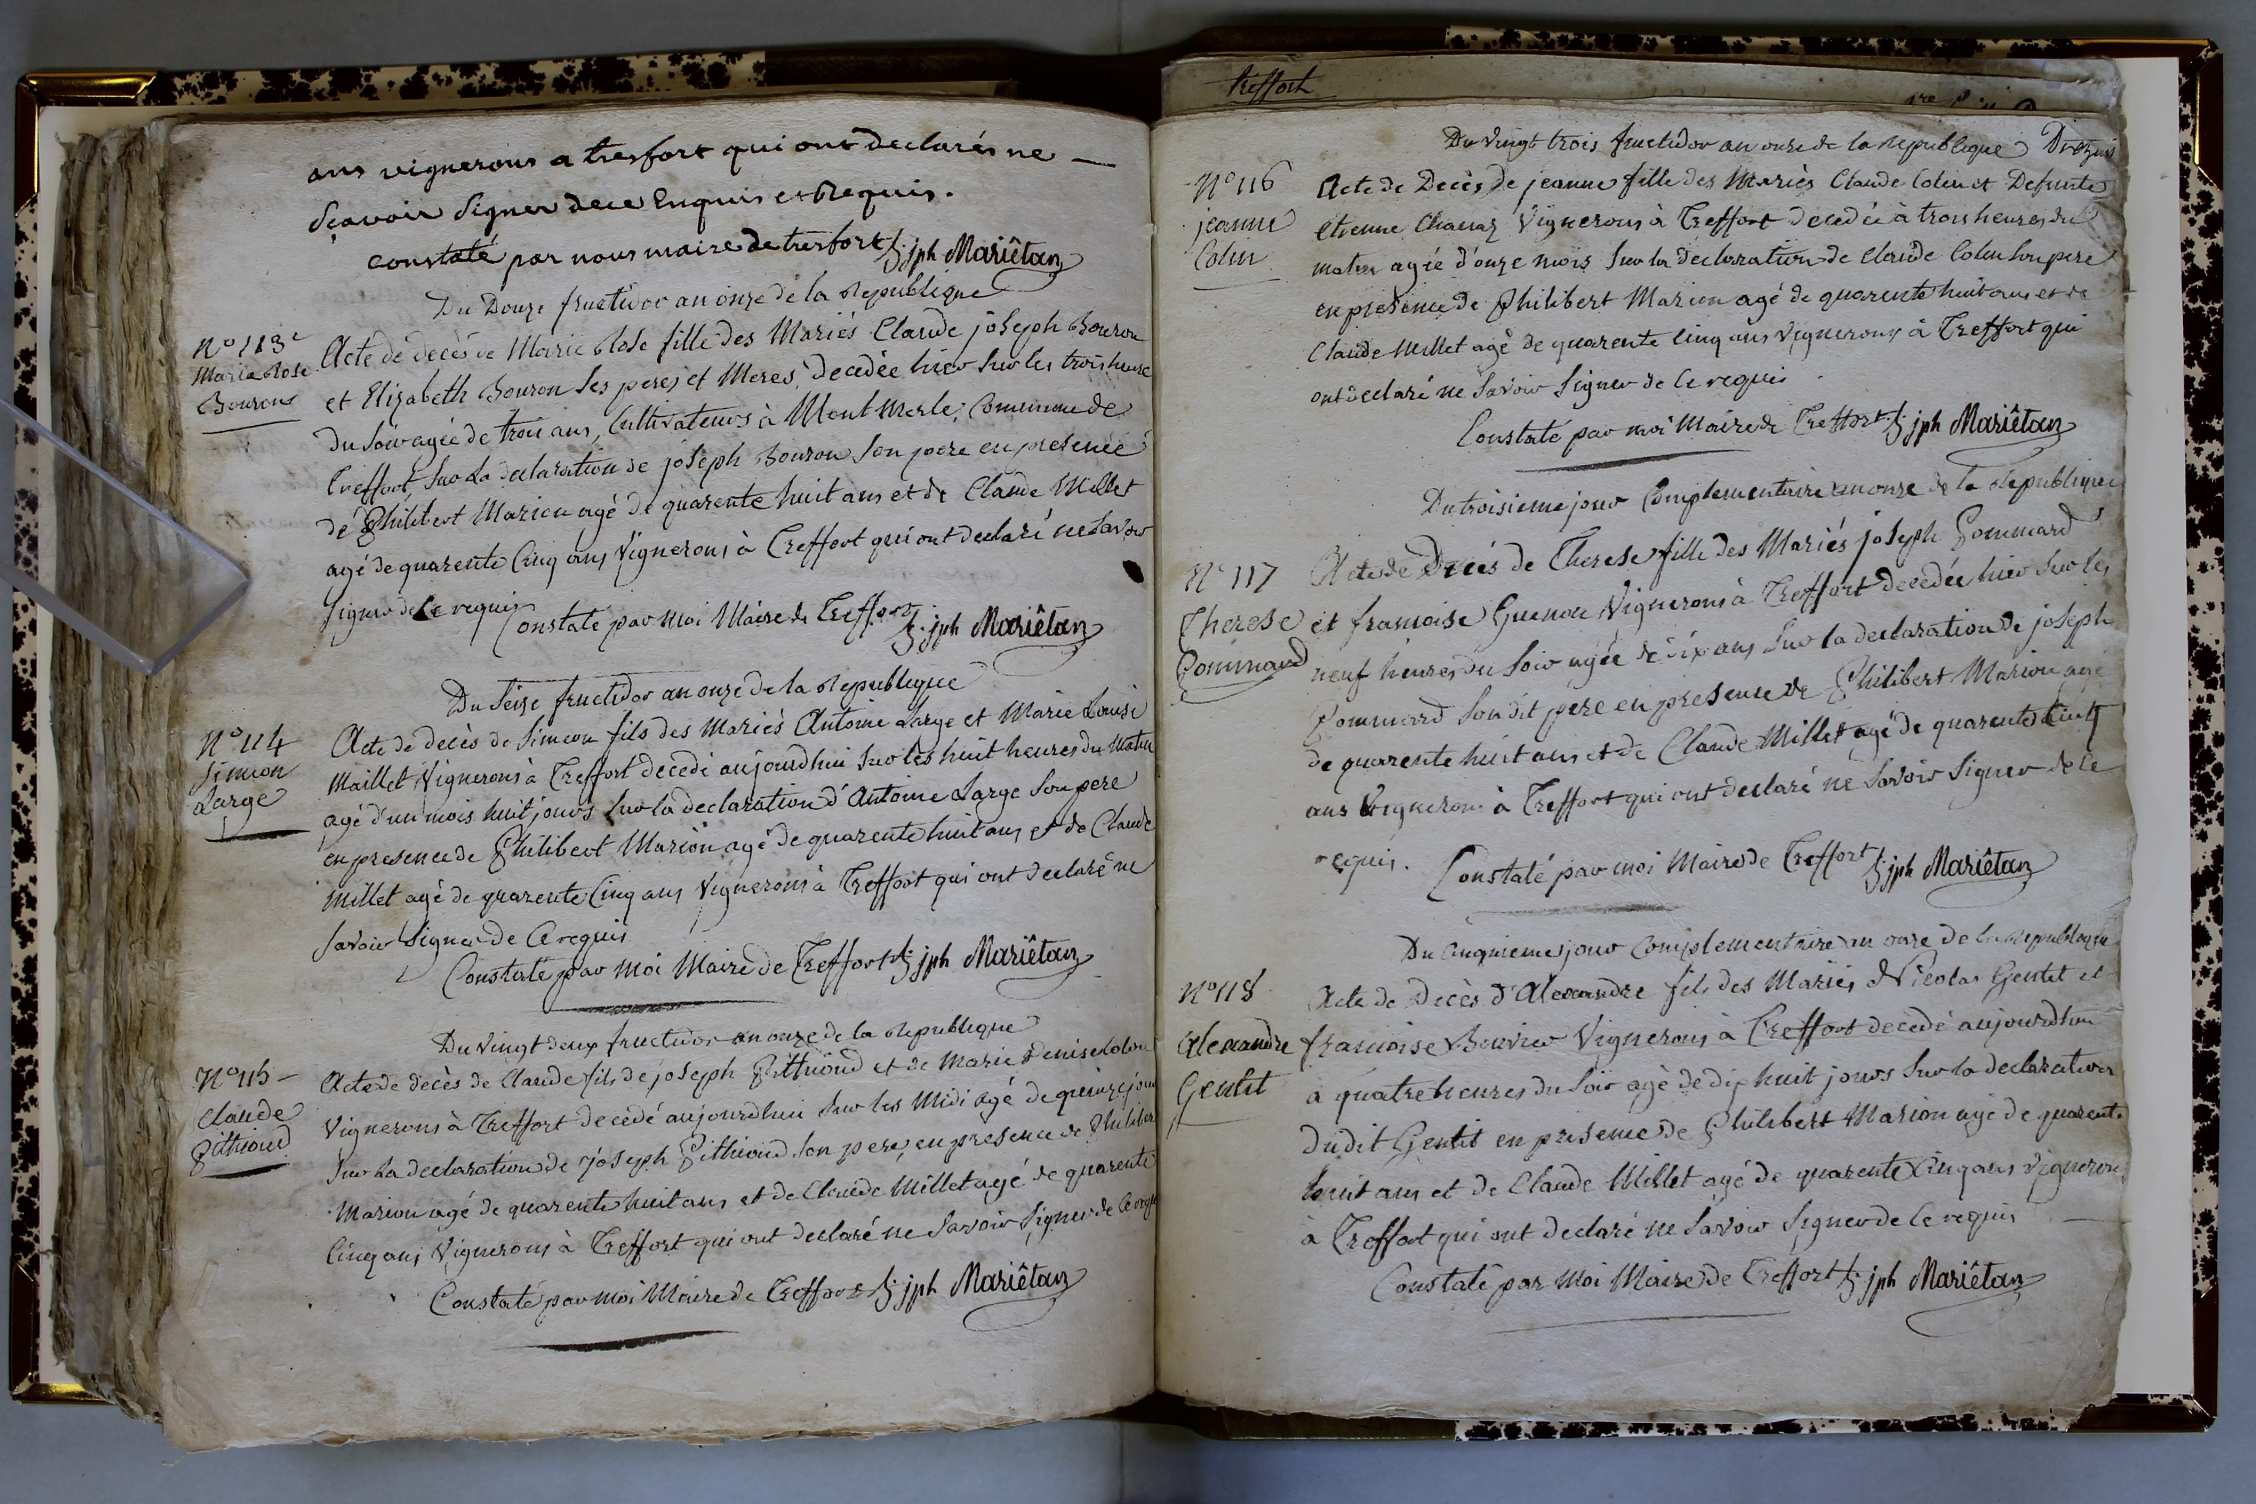 ans vignerons a tresfort qui ont declarés ne —
sçavoir signer de ce enquis et Requis.
constaté par nous maire de tresfort jph Mariêtan
Du Douze fructidor an onze de la Republique
N° 113e
Marie Rose
Bouron
Acte de decès de Marie Rose fille des Mariés Claude joseph Bouron
et Elizabeth Bouron ses peres et Meres, decedée hier sur les trois heure
du soir agée de trois ans, Cultivateurs à Mont Merle, Commune de
Treffort sur La declaration de joseph Bouron son pere en presence
de Philibert Marion agé de quarente huit ans et de Claude Millet
agé de quarente Cinq ans Vignerons à Treffort qui ont declaré ne Savoir
signer de Ce requis
Constaté par Moi Maire de Treffort jph Mariêtan
Du Seize fructidor an onze de la Republique
N° 114
Simeon
Large
Acte de decès de Simeon fils des Mariés Antoine Large et Marie Louise
Maillet Vignerons à Treffort decedé aujourdhui sur les huit heures du Matin
agé d'un mois huit jours sur la declaration d'Antoine Large son pere
en presence de Philibert Marion agé de quarente huit ans et de Claude
Millet agé de quarente Cinq ans Vignerons à Treffort qui ont declaré ne
savoir Signer de Ce requis
Constaté par Moi Maire de Treffort jph Mariêtan
Du Vingt deux fructidor an onze de la Republique
N° 115 —
Claude
Pithioud
Acte de decès de Claude fils de joseph Pithioud et de Marie Denise
Vignerons à Treffort decedé aujourdhui sur les Midi agé de quinze jour
sur La declaration de joseph Pithioud son pere, en presence de Philiber
Marion agé de quarente huit ans et de Claude Millet agé de quarente
Cinq ans Vignerons à Treffort qui ont declaré ne Savoir Signer de Ce requi
Constaté par Moi Maire de Treffort jph Mariêtan
treffort
Du Vingt trois fructidor an onze de la Republique
N° 116
jeanne
Colin
Acte de Decès de jeanne fille des Mariés Claude Colin et Defunte
etienne Chanaz Vignerons à Treffort decedée à trois heures du
matin agée d'onze mois sur la declaration de Claude Colin son pere
en presence de Philibert Marion agé de quarente huit ans et de
Claude Millet agé de quarente Cinq ans Vignerons à Treffort qui
ont declaré ne Savoir Signer de Ce requis
Constaté par moi Maire de Treffort jph Mariêtan
Du troisieme jour Complementaire an onze de la Republique
N° 117
Therese
Pommard
Acte de Decés de Therese fille des Mariés joseph Pommard
et francoise Guenon Vignerons à Treffort decedée hier sur les
neuf heures du soir agée de six ans sur la declaration de joseph
Pommard son dit pere en presence de Philibert Marion agé
de quarente huit ans et de Claude Millet agé de quarente Cinq
ans Vignerons à Treffort qui ont declaré ne Savoir Signer de Ce
requis.
Constaté par moi Maire de Treffort jph Mariêtan
Du Cinquieme jour Complementaire an onze de la Republique
N° 118
Alexandre
Gentit
Acte de Decès d'Alexandre fils des Mariés Nicolas Gentit et
francoise Bouvier Vignerons à Treffort decedé aujourdhui
à quatre heures du Soir agé de dix huit jours sur la declaration
du dit Gentit en presence de Philibert Marion agé de quarente
huit ans et de Claude Millet agé de quarente Cinq ans Vignerons
à Treffort qui ont declaré ne Savoir Signer de Ce requis
Constaté par Moi Maire de Treffort jph Mariêtan